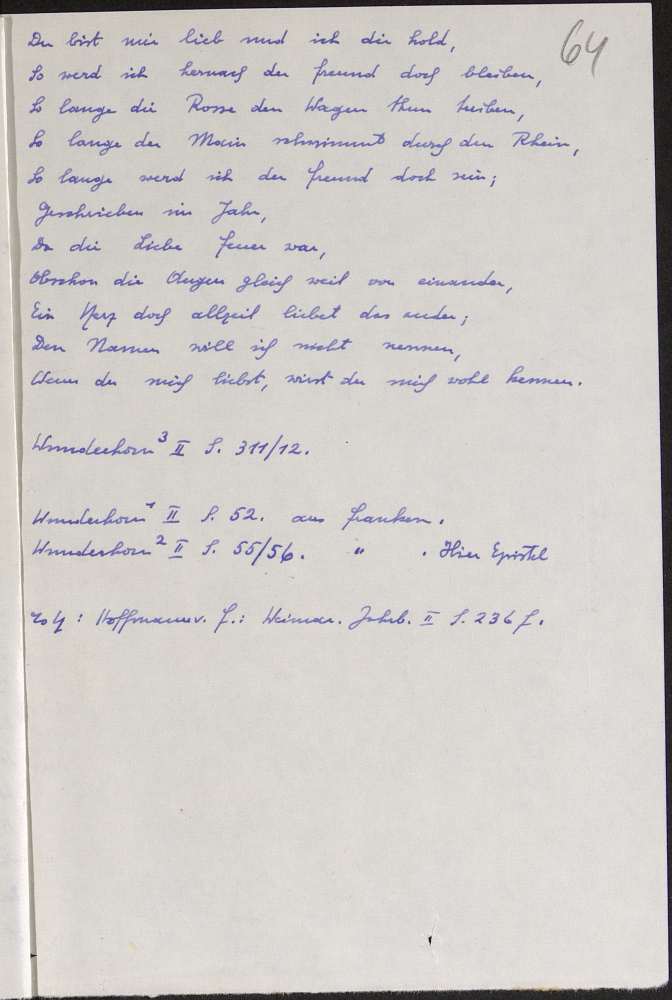 64
Du bist mir lieb und ich dir hold,
So werd ich hernach der freund doch bleiben,
So lange die Rosse den Wagen thun treiben,
So lange der Main schwimmt durch den Rhein,
So lange werd ich der freund doch sein;
Geschrieben im Jahr,
Da die Liebe feuer war,
Obschon die Augen gleich weit von einander,
Ein Herz doch allzeit liebet das ander;
Den Namen will ich nicht nennen,
Wenn du mich liebst, wirst du mich wohl kennen.
Wunderhorn³ II S. 311/12.
Wunderhorn¹ II S. 52. aus franken.
Wunderhorn² II S. 55/56. " . Hier Epistel
: Hoffmann v. F.: Weimar. Jahrb. II S. 236 f.